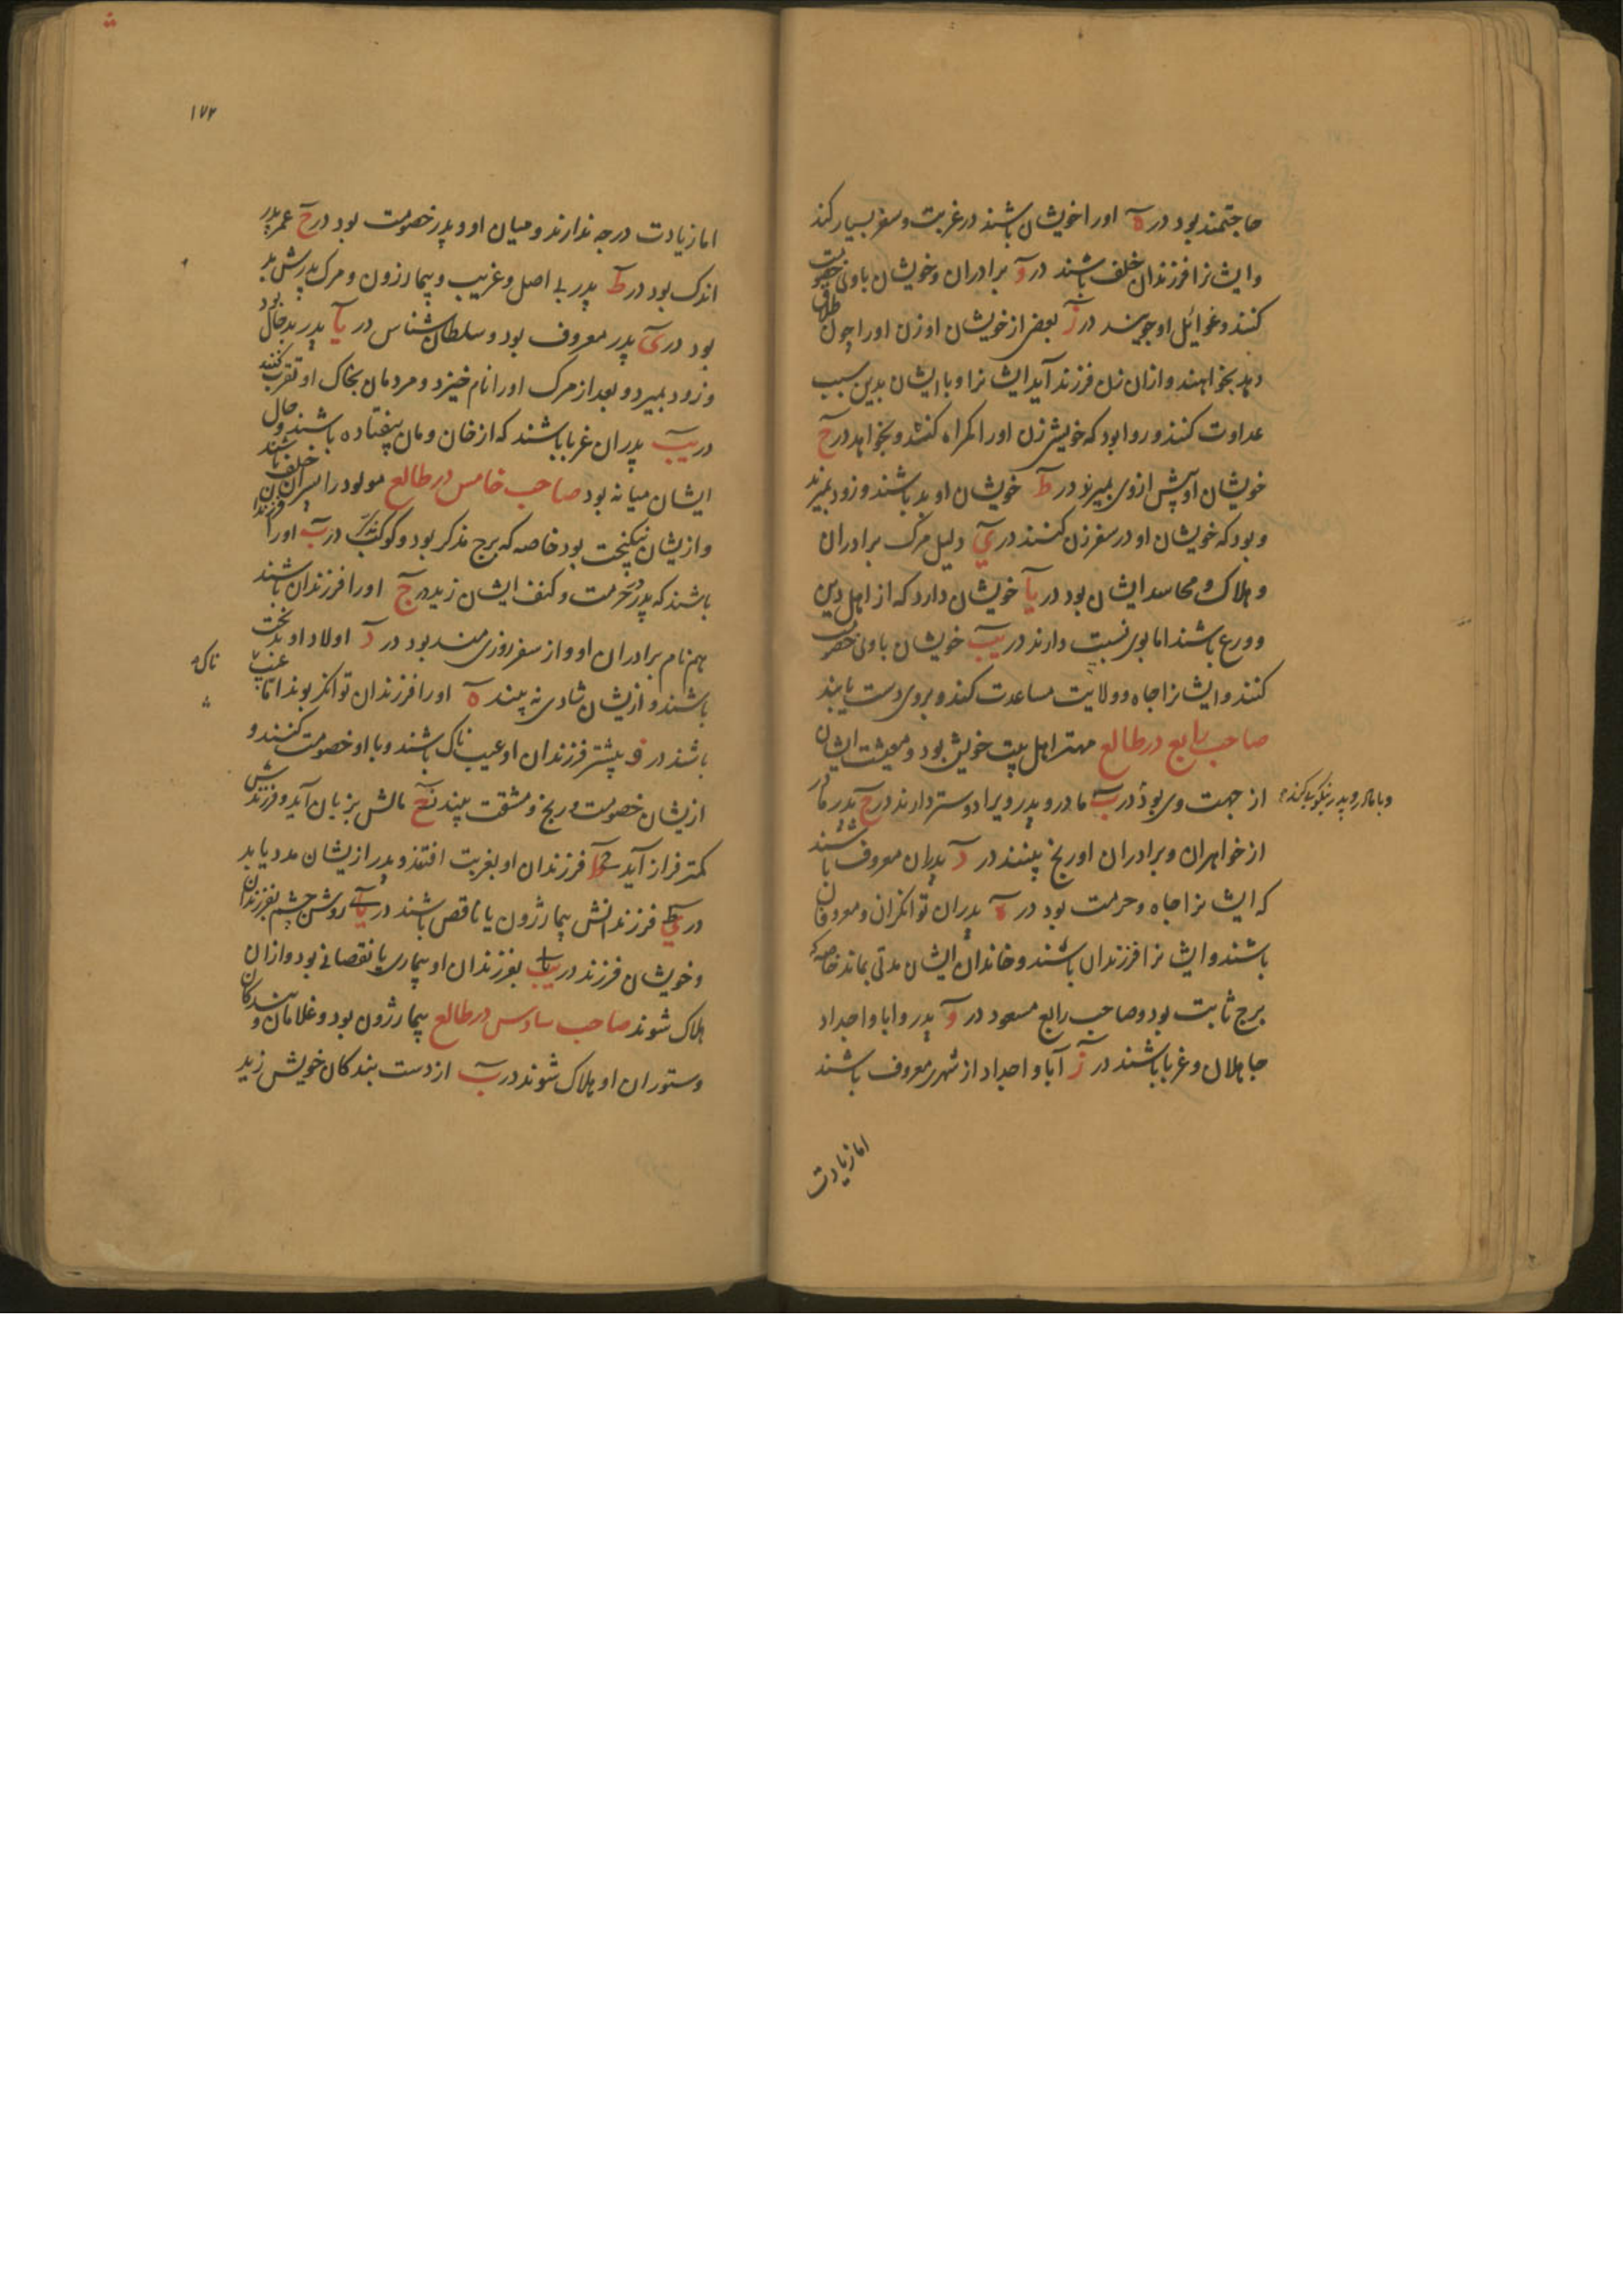 حاجتمند بود در ه اورا خویشان باشند در غربت و سفر بسیار کند
وایشانرا فرزندان خلف باشند در و برادران وخویشان باوی خصومت
کنند وغوائل او جویند در ز بعضی از خویشان او زن اورا چون طلاق
دهد بخواهند وازان زن فرزند آید ایشانرا وبا ایشان بدین سبب
عداوت کنند و روا بود که خویش زن اورا اکراه کنند و بخواهد در ح
خویشان او پیش ازوی بمیرند در ط خویشان او بد باشند و زود بمیرند
و بود که خویشان او در سفر زن کنند در ی دلیل مرک برادران
و هلاک و محاسد ایشان بود در یا خویشان دارد که از اهل دین
و ورع باشند اما بوی نسبت دارند در یب خویشان باوی خصومت
کنند وایشانرا جاه و ولایت مساعدت کند و بروی دست یابند
صاحب رابع در طالع مهتر اهل بیت خویش بود و معیشت ایشان
از جهت وی بود در ب مادر و پدر ویرا دوستر دارند در ج پدر مادر
وبا مادر و پدر نیکویی کند
از خواهران و برادران او رنج بینند در د پدران معروف باشند
که ایشانرا جاه و حرمت بود در ه پدران توانکران و معروفان
باشند وایشانرا فرزندان باشند و خاندان ایشان مدتی بماند خاصه که
برج ثابت بود و صاحب رابع مسعود در و پدر و ابا و اجداد
جاهلان و غربا باشند در ز آبا و اجداد از شهر معروف باشند
اما زیادت
۱۷۲
اما زیادت درجه ندارند و میان او و پدر خصومت بود در ح عمر پدر
اندک بود در ط پدر بی اصل و غریب و بیمار زون و مرک پدرش بد
بود در ی پدر معروف بود و سلطان شناس در یا پدر بدحال بود
و زود بمیرد و بعد از مرک اورا نام خیزد و مردمان بخاک او تقرب کنند
در یب پدران غربا باشند که از خان و مان بیفتاده باشند و حال
ایشان میانه بود صاحب خامس در طالع مولود را پسران خلف باشند
وازیشان نیکبخت بود خاصه که برج مذکر بود و کوکب مذکر در ب اورا فرزندان
باشند که پدر در حرمت و کنف ایشان زید در ج اورا فرزندان باشند
هم نام برادران او و از سفر روزی مند بود در د اولاد او بدبخت
باشند وازیشان شادی نه بیند ه اورا فرزندان توانکر بوند اما عیب
ناک
باشند در و بیشتر فرزندان او عیب ناک باشند وبا او خصومت کنند و
ازیشان خصومت و رنج و مشقت بیند ح مالش بزیان آید و فرزندش
کمتر فراز آید ط فرزندان او بغربت افتند و پدر ازیشان مدد یابد
در ی فرزندانش بیمار زون یا ناقص باشند در یا روشن چشم بفرزندان
و خویشان فرزند در یب بفرزندان او بیماری یا نقصانی بود وازان
هلاک شوند صاحب سادس در طالع بیمار زون بود و غلامان و بندکان
و ستوران او هلاک شوند در ب از دست بندکان خویش زید